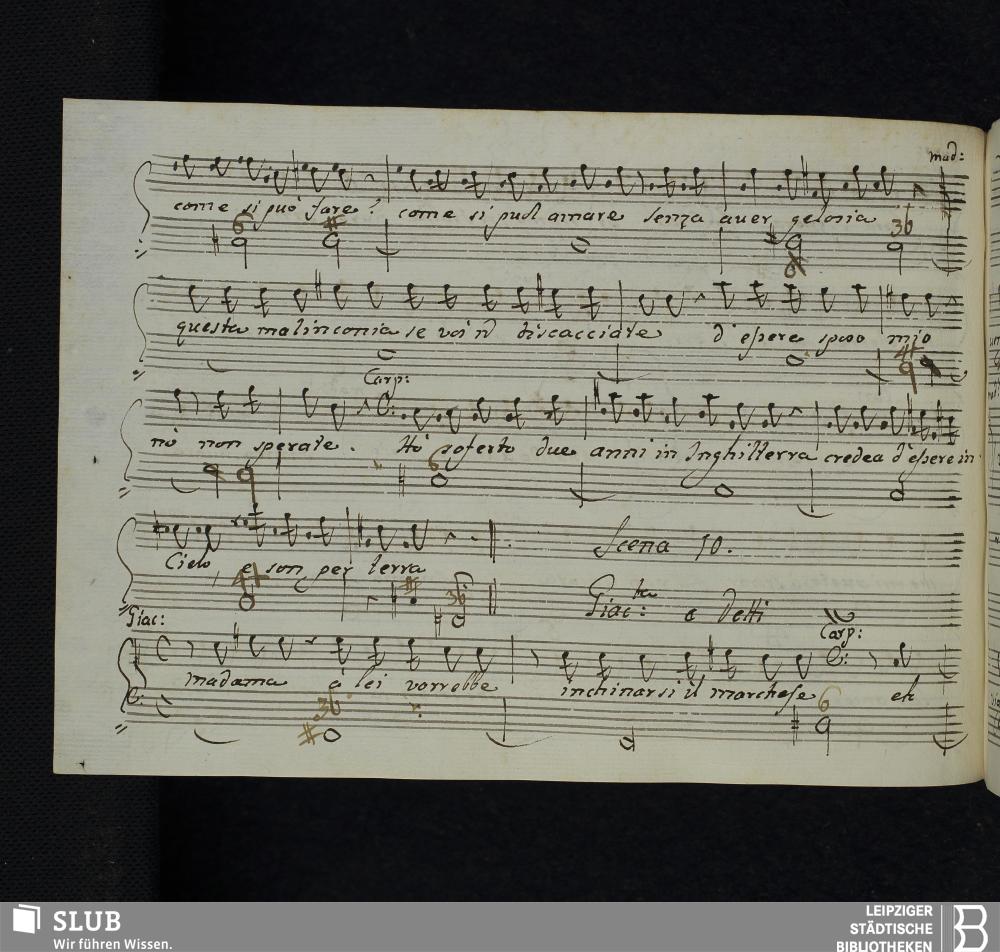 mad:
come si può fare? come si può amare senza aver gelosia
6 # 36
questa malinconia se voi nō discacciate d'essere sposo mio
4+
Carp:
nò non sperate. Hò soferto due anni in Inghilterra credea d'essere in
6
Cielo e son per terra
4+ # 36
Scena 10.
Giac:ta e Detti
Giac:
Carp:
madama à lei vorrebbe inchinarsi il marchese eh
36 6
SLUB
Wir führen Wissen.
LEIPZIGER
STÄDTISCHE
BIBLIOTHEKEN